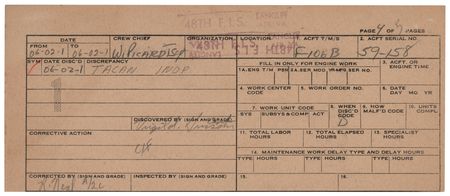 48TH F.I.S.
LANGLEY
PAGE 4 of
DATE CREW CHIEF ORGANIZATION LOCATION ACFT T/M/S 2. ACFT SERIAL NO.
FROM TO
06-02-1 06-02-1 W. Picard TSgt 48TH F.I.S. F106B 59-158
SYM DATE DISC'D DISCREPANCY FILL IN ONLY FOR ENGINE WORK 3. ACFT. OR ENGINE TIME
06-02-1 TACAN INOP 1A. ENG T/M 2A. ENG SER NO.
4. WORK CENTER CODE 5. WORK ORDER NO. 6. DATE
DAY MO YR
7. WORK UNIT CODE 8. WHEN DISC'D CODE 9. HOW MALF'D CODE 10. UNITS COMPL.
SYS SUBSYS & COMP ACT
D
DISCOVERED BY (SIGN AND GRADE)
CORRECTIVE ACTION 11. TOTAL LABOR HOURS 12. TOTAL ELAPSED HOURS 13. SPECIALIST HOURS
14. MAINTENANCE WORK DELAY TYPE AND DELAY HOURS
TYPE HOURS TYPE HOURS TYPE HOURS TYPE HOURS
CORRECTED BY (SIGN AND GRADE) INSPECTED BY (SIGN AND GRADE) 15. 16.